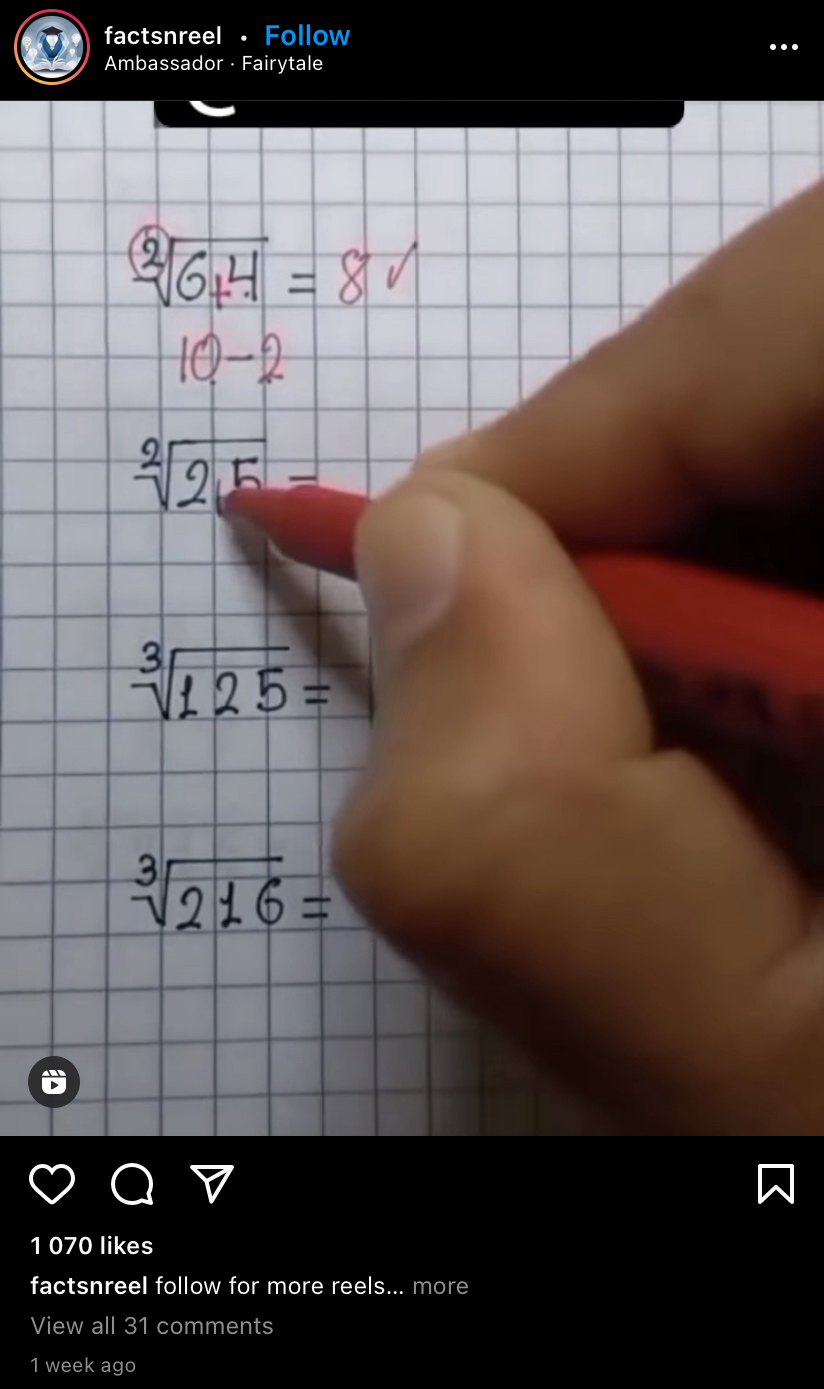 factsnreel • Follow
Ambassador · Fairytale
²√6+4 = 8 ✓
10-2
²√25 =
³√125 =
³√216 =
1 070 likes
factsnreel follow for more reels... more
View all 31 comments
1 week ago